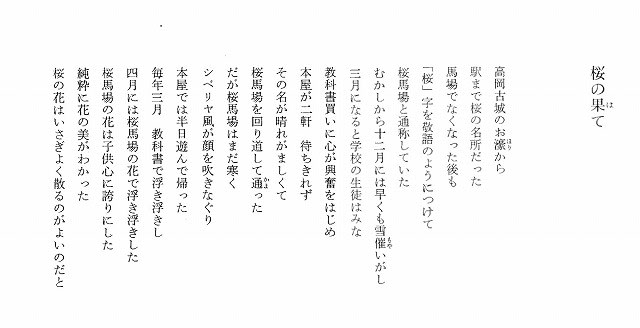 桜の果て
高岡古城のお濠から
駅まで桜の名所だった
馬場でなくなった後も
「桜」字を敬語のようにつけて
桜馬場と通称していた
むかしから十二月には早くも雪催いがし
三月になると学校の生徒はみな
教科書買いに心が興奮をはじめ
本屋が二軒　待ちきれず
その名が晴れがましくて
桜馬場を回り道して通った
だが桜馬場はまだ寒く
シベリヤ風が顔を吹きなぐり
本屋では半日遊んで帰った
毎年三月　教科書で浮き浮きし
四月には桜馬場の花で浮き浮きした
桜馬場の花は子供心に誇りにした
純粋に花の美がわかった
桜の花はいさぎよく散るのがよいのだと